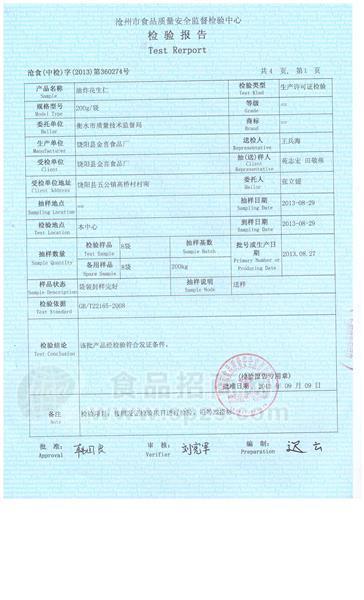 沧州市食品质量安全监督检验中心
检 验 报 告
Test Rerport
沧食(中检)字(2013)第360274号 共 4 页, 第 1 页
产品名称 Sample 油炸花生仁 检验类型 Test Kind 生产许可证检验
规格型号 Model Type 200g/袋 等级 Grade ==
委托单位 衡水市质量技术监督局 商标 Brand ==
生产单位 Manufacturer 饶阳县金喜食品厂 送检人 Representative 王兵海
受检单位 Client 饶阳县金喜食品厂 抽(送)样人 Client Representative 苑志宏 田敬雅
受检单位地址 Client Address 饶阳县五公镇高桥村村南 委托人 张立媛
抽样地点 Sampling Location == 抽样日期 Sampling Date 2013-08-29
检验地点 Test Location 本中心 到样日期 Sampling Date 2013-08-29
抽样数量 Sample Quantity 检验样品 Test Sample 8袋 抽样基数 Sample Batch 200kg 批号或生产日期 Primary Number or Producing Date 2013.08.27
备用样品 Spare Sample 8袋
样品状态 Sample Description 袋装封样完好 抽样方式 Sample Mode 送样
检验依据 Test Standard GB/T22165-2008
检验结论 Test Conclusion 该批产品经检验符合发证条件。
(检验报告专用章)
批准日期: 2013 年 09 月 09 日
备注 Note
食品招商网
批 准: Approval 审 核: Verifier 刘宪军 编 制: Preparation 迟云